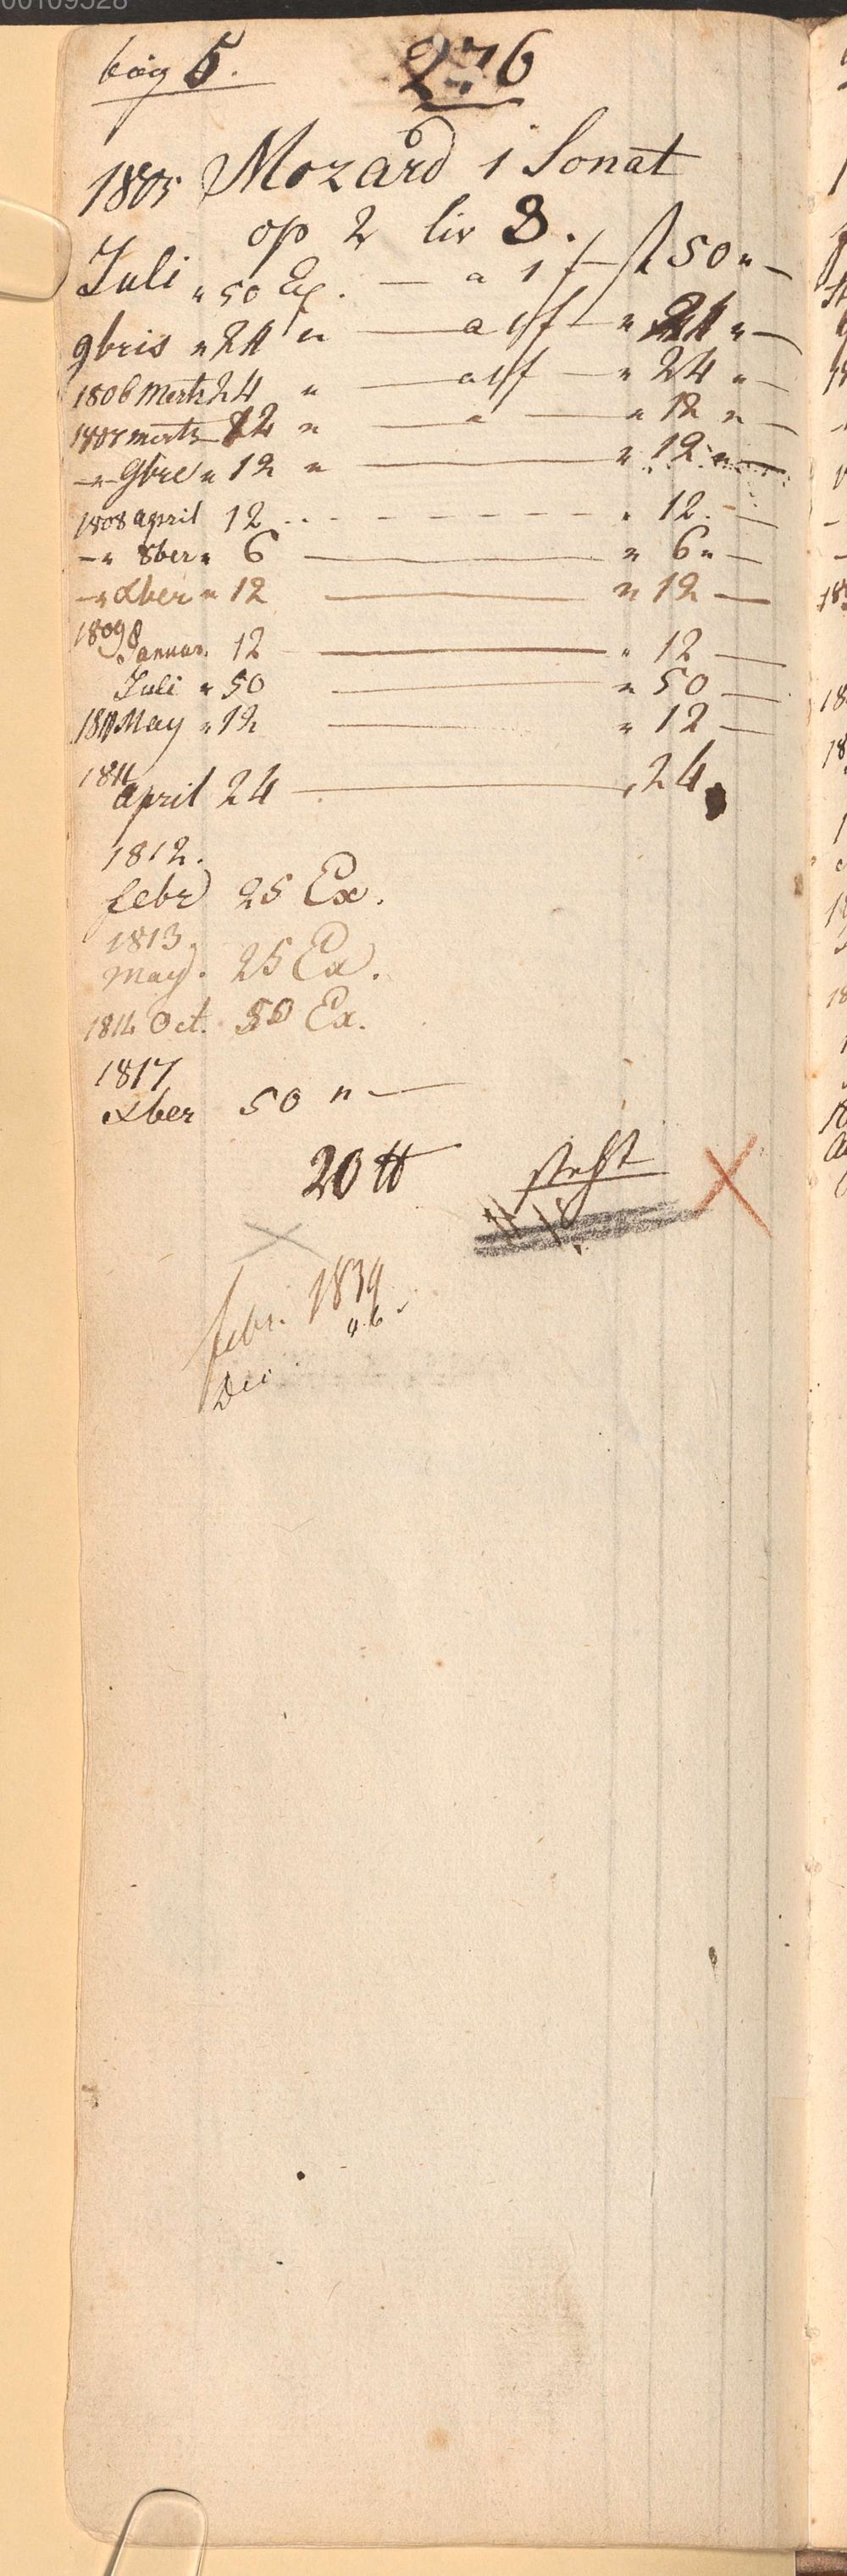 bög 5.
276
1805 Mozard 1 Sonat
op 2 liv 8.
Juli " 50 Ex. — a 1 f — f 50 " —
9bris " 24 " — a 1f — " 24 " —
1806 Merts 24 " — a 1f — " 24 " —
merts 12 " — " — " 12 " —
— " 9bre " 12 " — " 12 " —
1808 april 12 - - - - - - " 12. —
— " 8ber " 6 — " 6 " —
— " Xber " 12 — " 12 —
1809
Januar. 12 — " 12 —
Juli " 50 — " 50 —
May " 12 — " 12 —
1811
april 24 — " 24
1812.
febr 25 Ex.
1813.
May. 25 Ex.
1814 Oct. 50 Ex.
1817
Xber 50 " —
20 tt
steht
febr. 1839
Dec